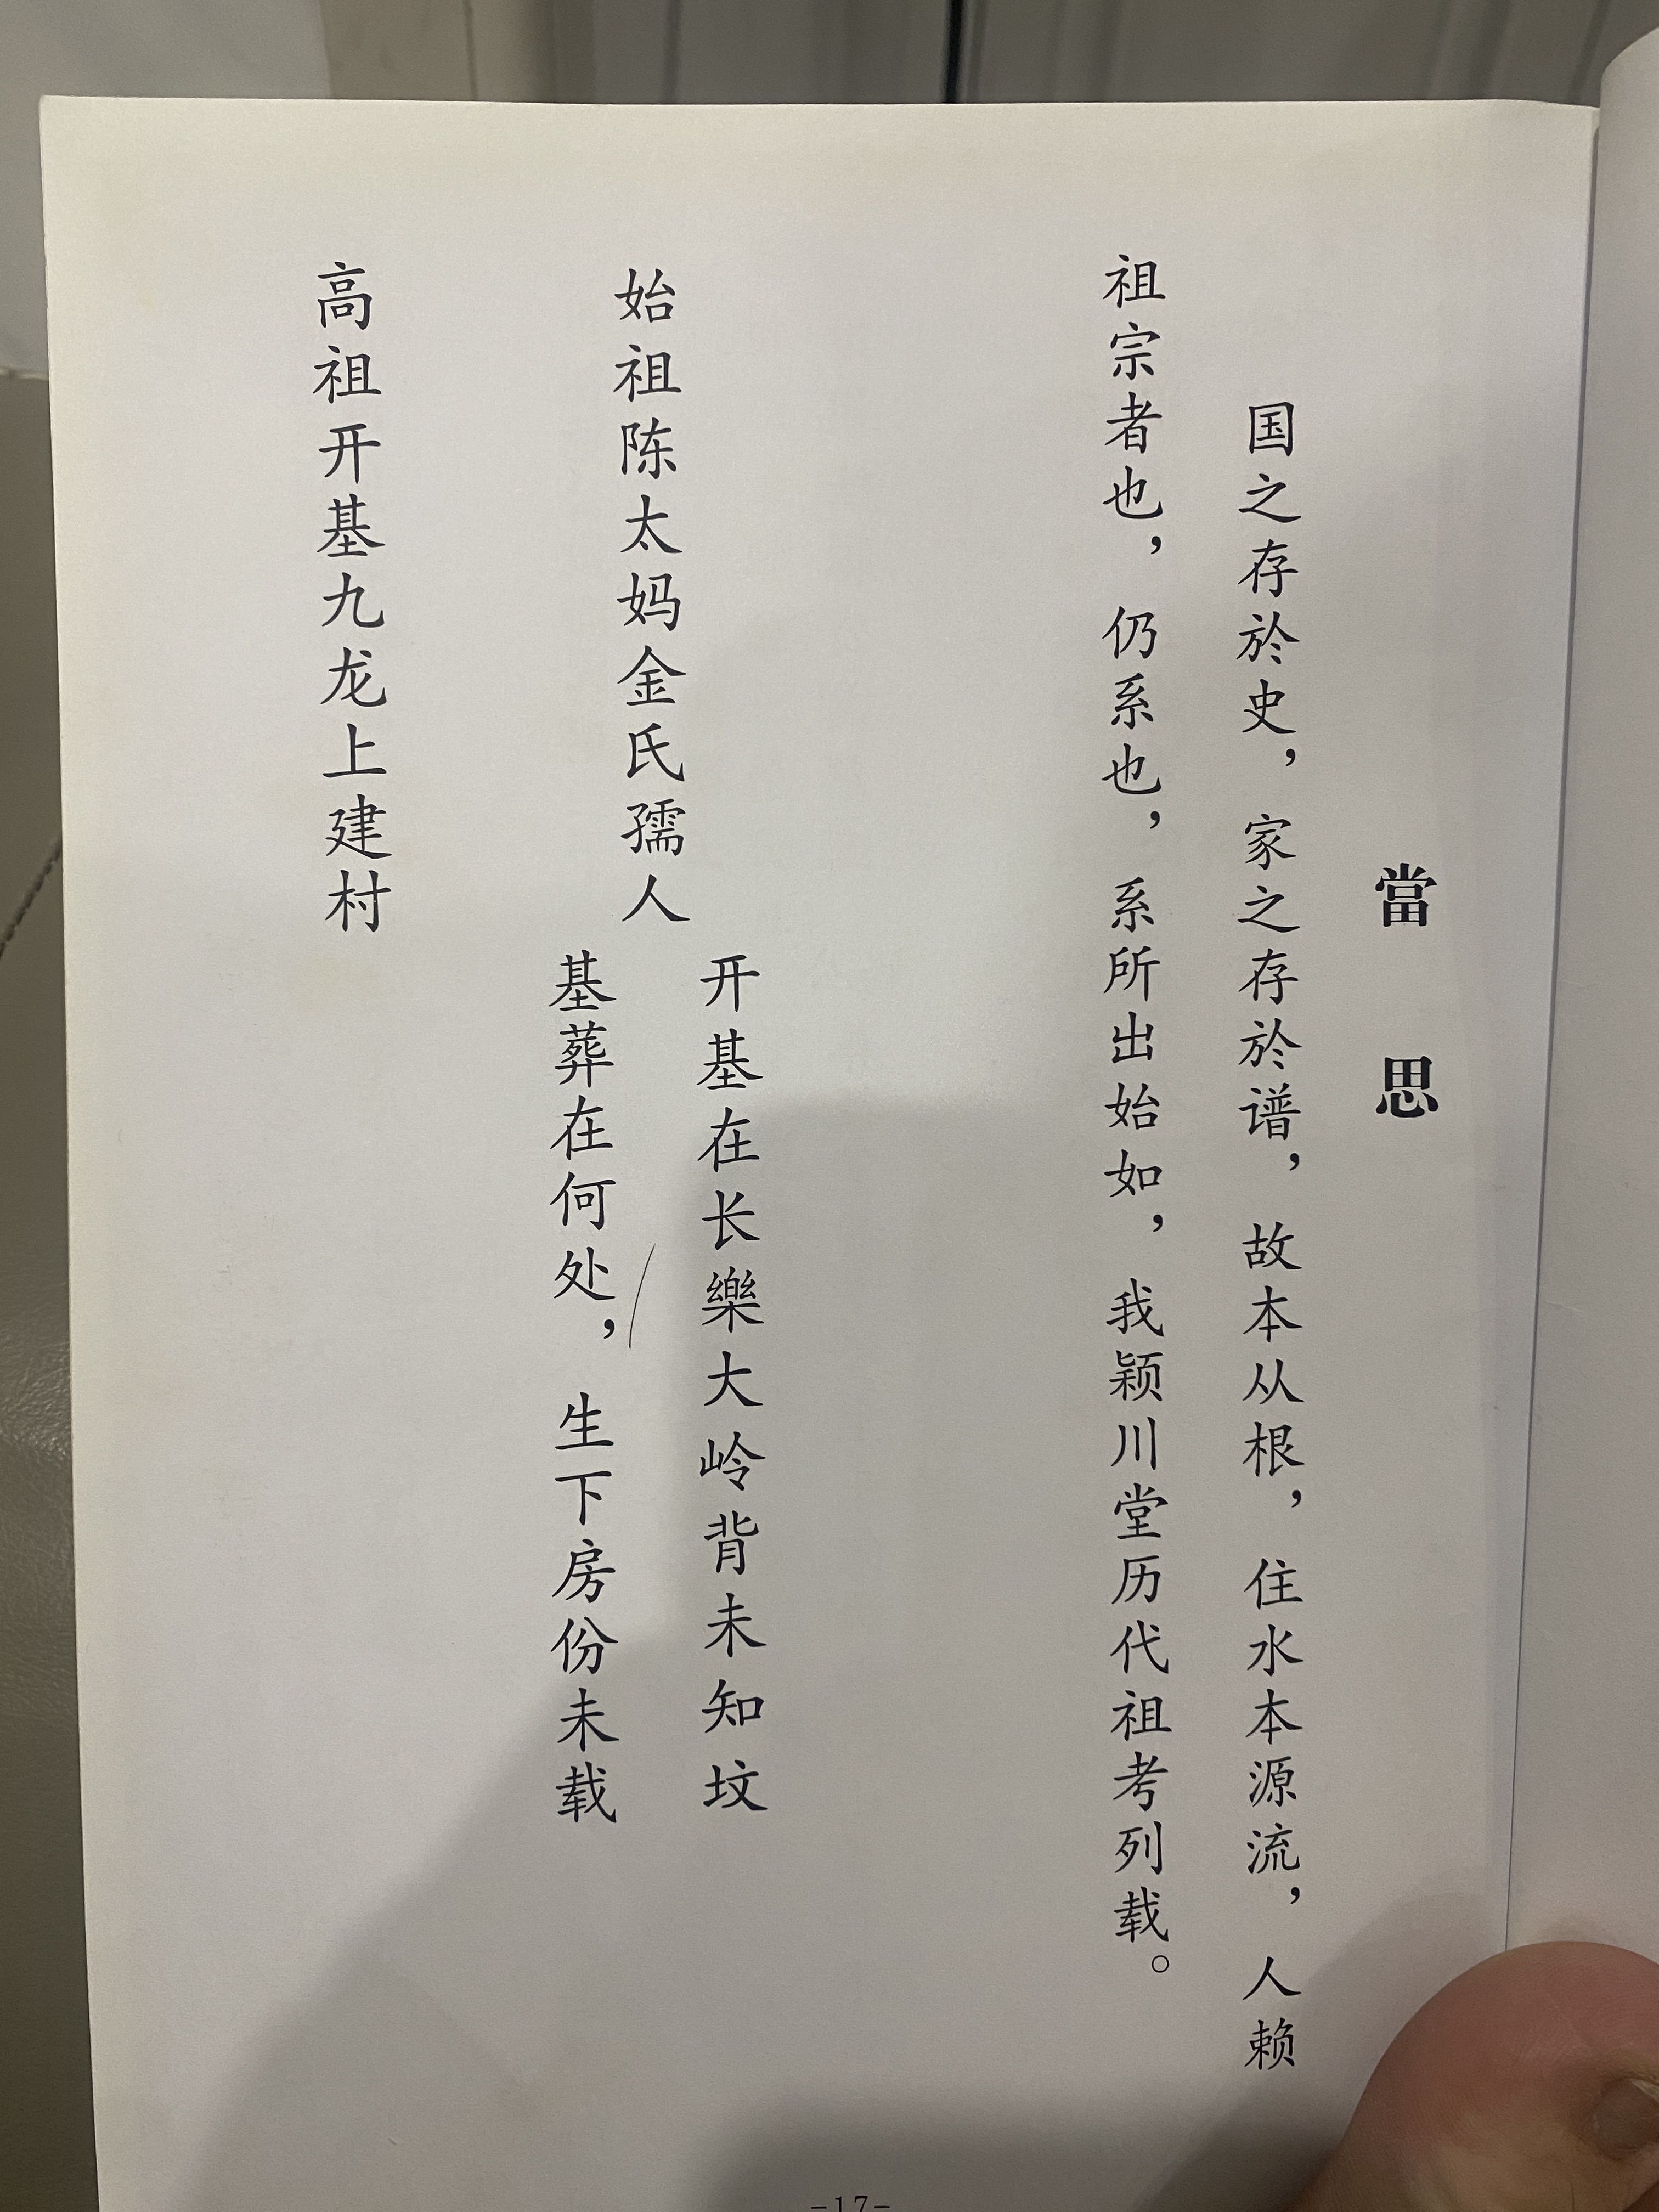 當思
国之存於史，家之存於谱，故本从根，住水本源流，人赖
祖宗者也，仍系也，系所出始如，我颖川堂历代祖考列载。
始祖陈太妈金氏孺人
开基在长樂大岭背未知坟
基葬在何处，生下房份未载
高祖开基九龙上建村
-17-